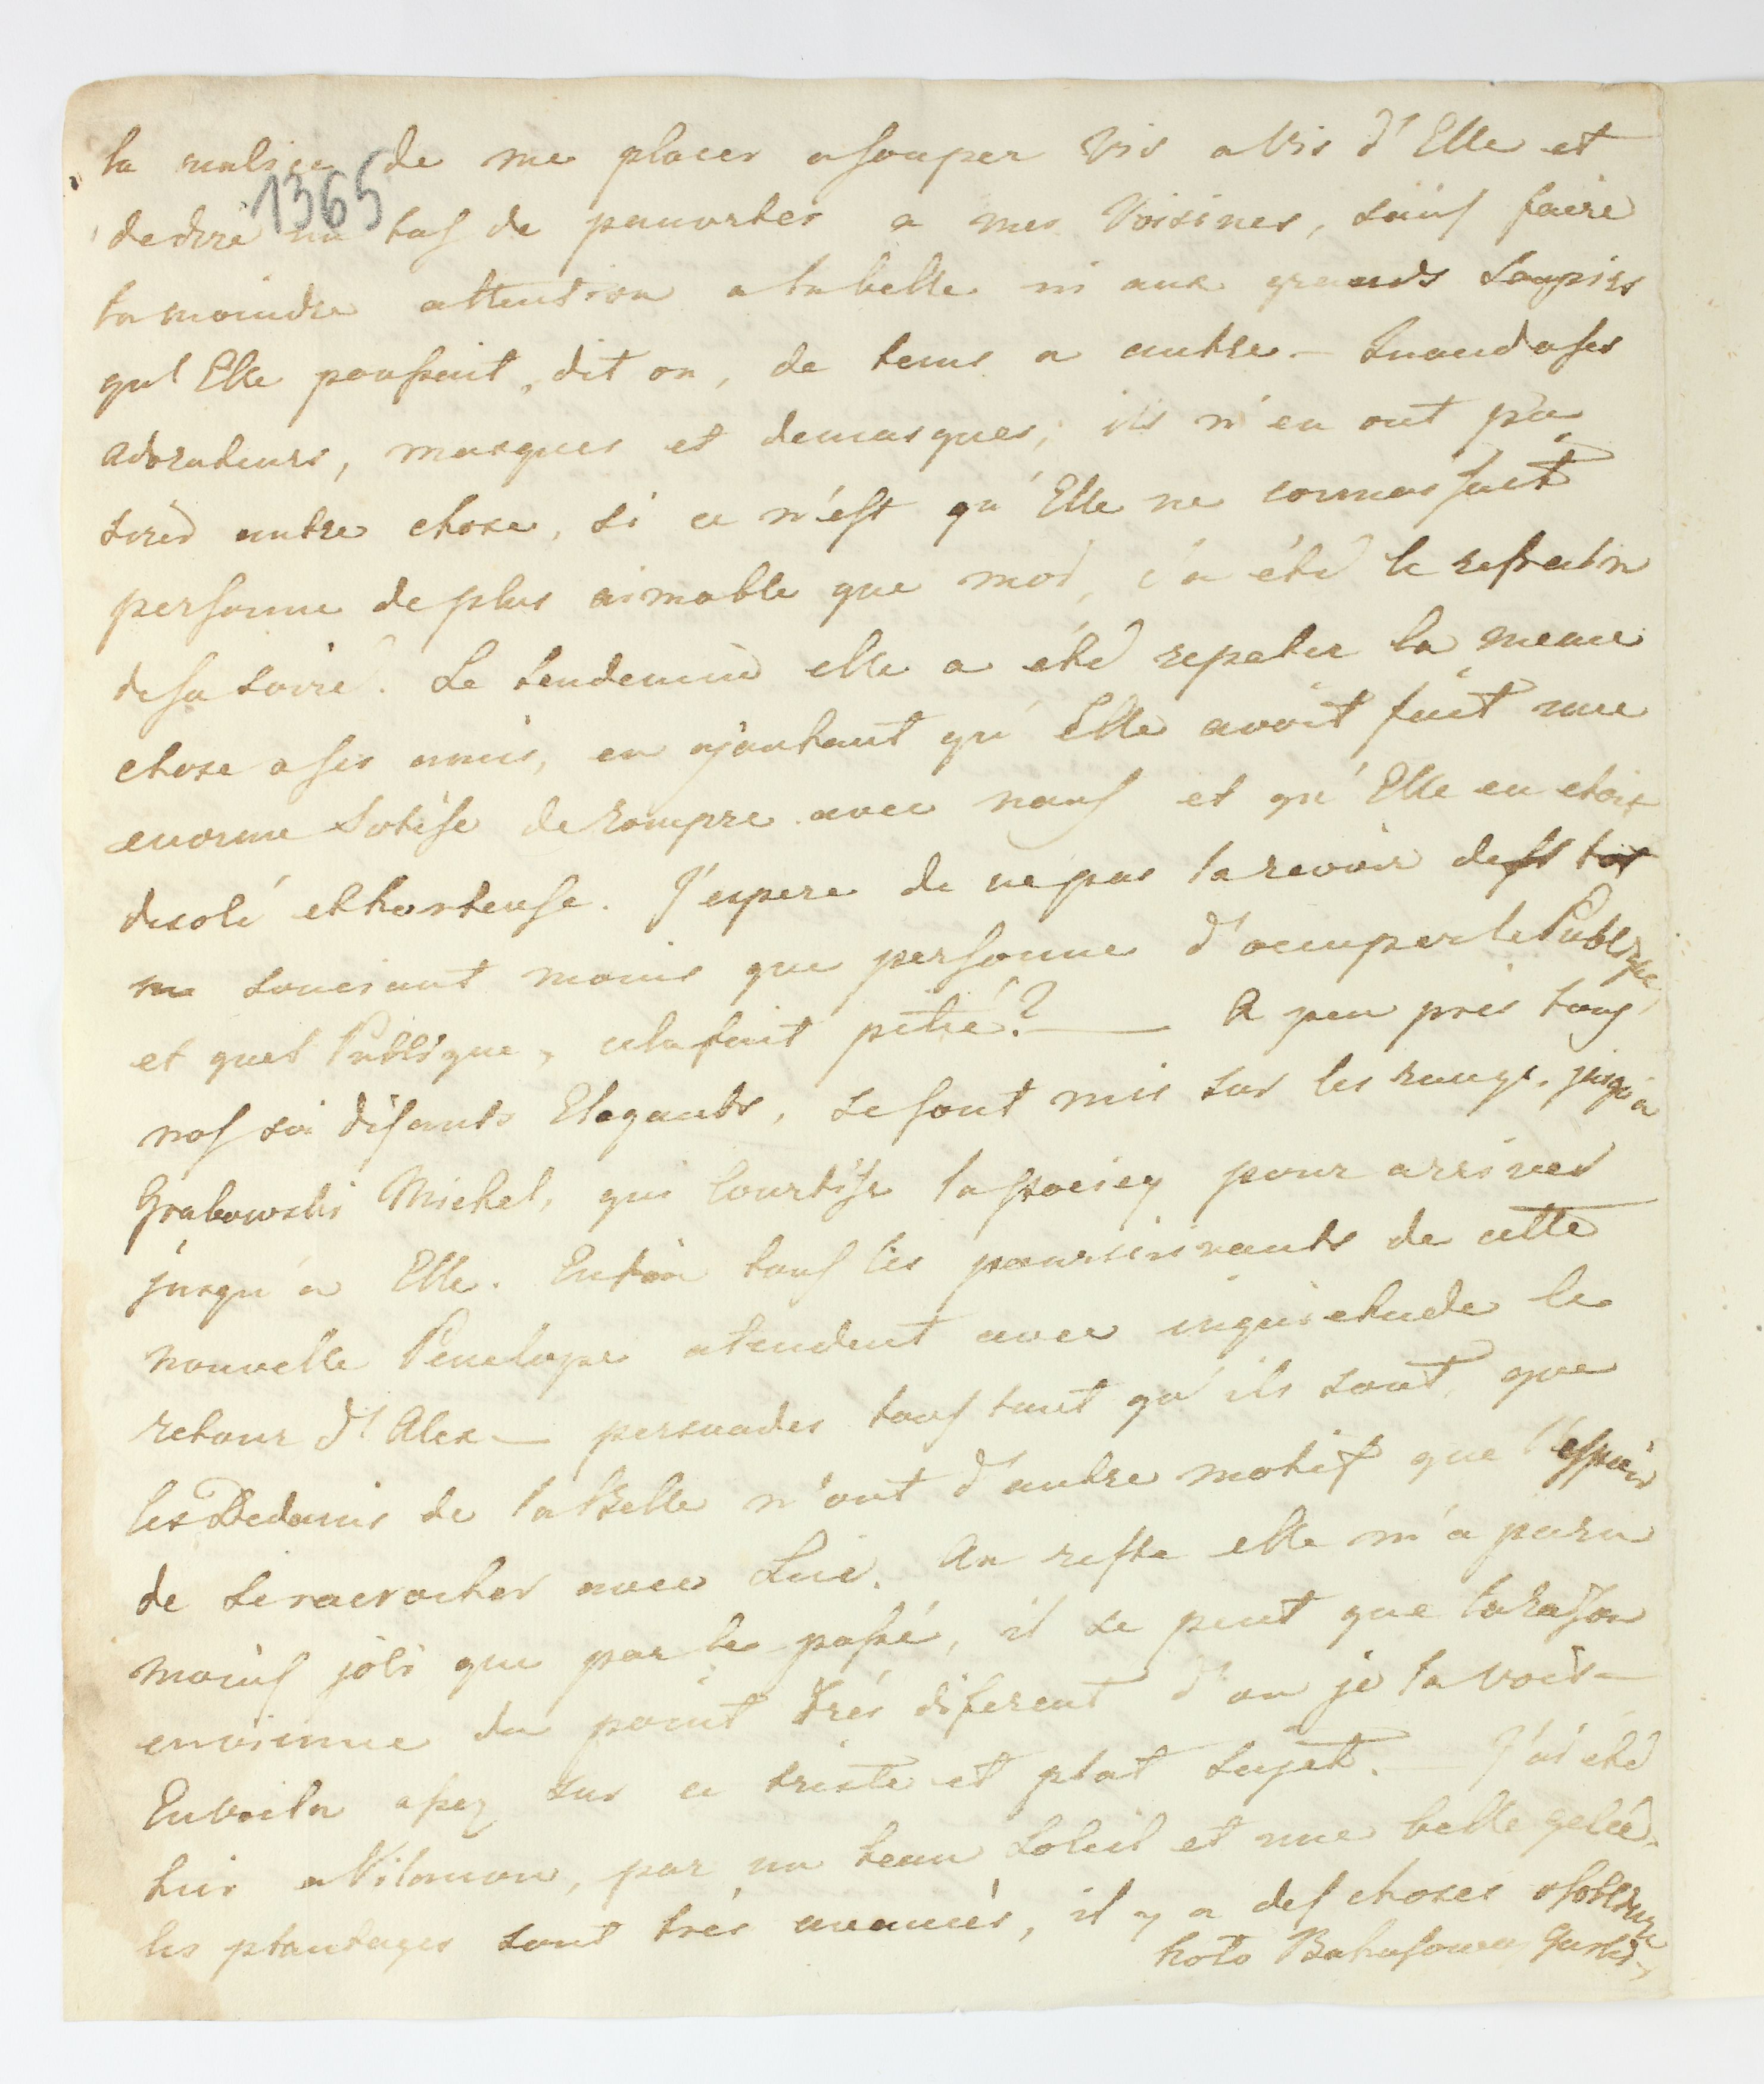 la malice de me placer a souper vis a vis d'Elle et
1365
de dire un tas de pauvretes a mes Voisines, sans faire
la moindre attention a la belle ni aux grands soupirs
qu'Elle poussait, dit on, de tems a autre — Quand a ses
adorateurs, masques et demasques, ils n'en ont pu
tirer autre chose, si ce n'est qu'Elle ne connaissait
personne de plus aimable que moi, c'a été le refrain
de sa soiré. Le lendemin elle a été repeter la meme
chose a ses amis, en ajoutant qu'Elle avoit fait une
enorme sotise de rompre avec nous et qu'Elle en etoit
desolé et honteuse. J'espere de ne pas la revoir de si tot
me souciant moins que personne d'ocuper le Publique,
et quel Publique, cela fait pitié? — A peu près tous
nos soi disants Elegants, se sont mis sur les rangs, jusqu'a
Grabowski Michel, qui Courtise la pour arriver
jusqu'a Elle. Enfin tous les poursuivants de cette
nouvelle Penelope atendent avec inquietude le
retour d'Alex — persuades tous tant qu'ils sont, que
les Dedains de la Belle n'ont d'autre motif que l'espoir
de se racrocher avec Lui. Au reste elle m'a paru
moins joli que par le passé, il se peut que la raison
en vienne du point très diferent d'ou je la vois —
En voila assez sur ce triste et plat sujet. — J'ai été
hier a Vilanow, par un beau Soleil et une belle gelée.
les plantages sont très avancés, il y a des choses
koło Gorki,